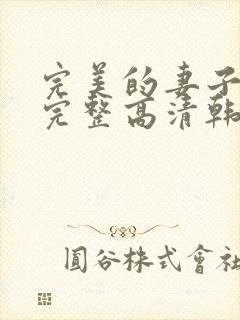 完美的妻子
完整高清韩
圓谷株式會社